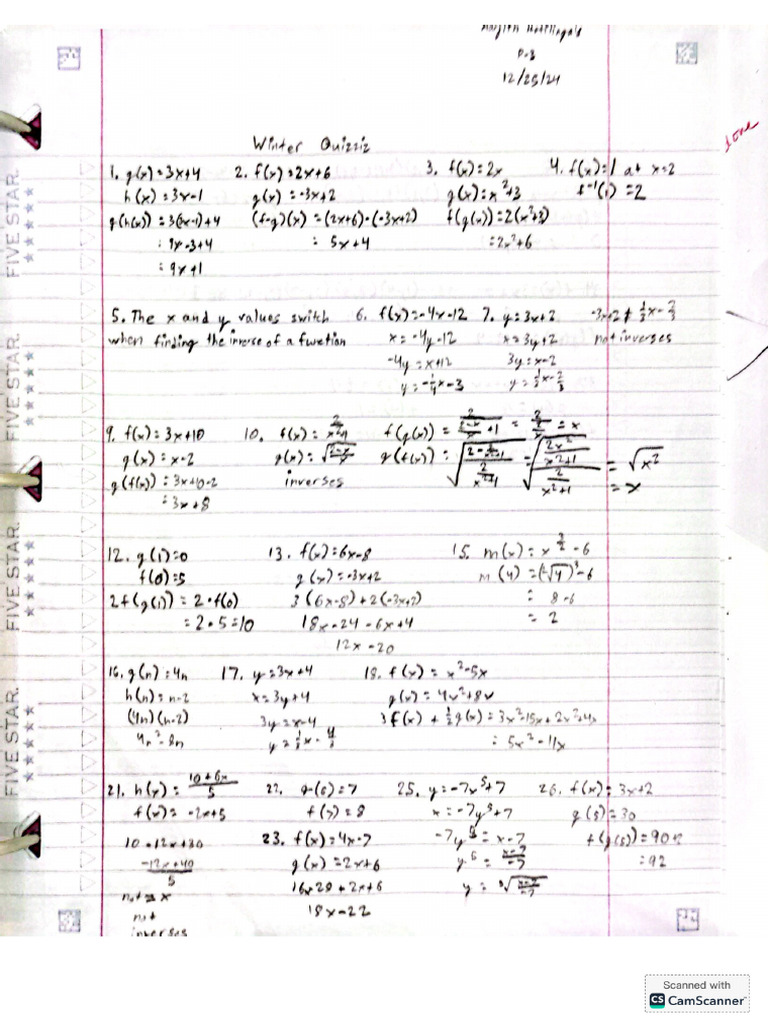 P.3
12/25/24
done
Winter Quizziz
1. g(x)=3x+4
h(x)=3x-1
g(h(x))=3(3x-1)+4
=9x-3+4
=9x+1
2. f(x)=2x+6
g(x)=-3x+2
(f-g)(x)=(2x+6)-(-3x+2)
=5x+4
3. f(x)=2x
g(x)=x²+3
f(g(x))=2(x²+3)
=2x²+6
4. f(x)=1 at x=2
f⁻¹(1)=2
5. The x and y values switch
when finding the inverse of a function
6. f(x)=-4x-12
x=-4y-12
-4y=x+12
y=-1/4x-3
7. y=3x+2
x=3y+2
3y=x-2
y=1/3x-2/3
-3x+2≠1/3x-2/3
not inverses
9. f(x)=3x+10
g(x)=x-2
g(f(x))=3x+10-2
=3x+8
10. f(x)=
g(x)=√((2-x)/x)
inverses
f(g(x))=2/((2-x)/x+1)=2/(2/x)=x
g(f(x))=
=√((2x²/(x²+1))/(2/(x²+1)))=√x²
=x
12. g(1)=0
f(0)=5
2f(g(1))=2·f(0)
=2·5=10
13. f(x)=6x-8
g(x)=-3x+2
3(6x-8)+2(-3x+2)
18x-24-6x+4
12x-20
15. m(x)=x^(3/2)-6
m(4)=(²√4)³-6
=8-6
=2
16. g(n)=4n
h(n)=n-2
(4n)(n-2)
4n²-8n
17. y=3x+4
x=3y+4
3y=x-4
y=1/3x-4/3
18. f(x)=x²-5x
g(x)=4x²+8x
3f(x)+1/2g(x)=3x²-15x+2x²+4x
=5x²-11x
21. h(x)=(10+6x)/5
f(x)=-2x+5
10-12x+30
(-12x+40)/5
not = x
not
inverses
22. g(6)=7
f(7)=8
23. f(x)=4x-7
g(x)=2x+6
16x-28+2x+6
18x-22
25. y=-7x⁵+7
x=-7y⁵+7
-7y⁵=x-7
y⁵=(x-7)/-7
y=⁵√((x-7)/-7)
26. f(x)=3x+2
g(5)=30
f(g(5))=90+2
=92
FIVE STAR.
FIVE STAR.
FIVE STAR.
FIVE STAR.
Scanned with
CS CamScanner